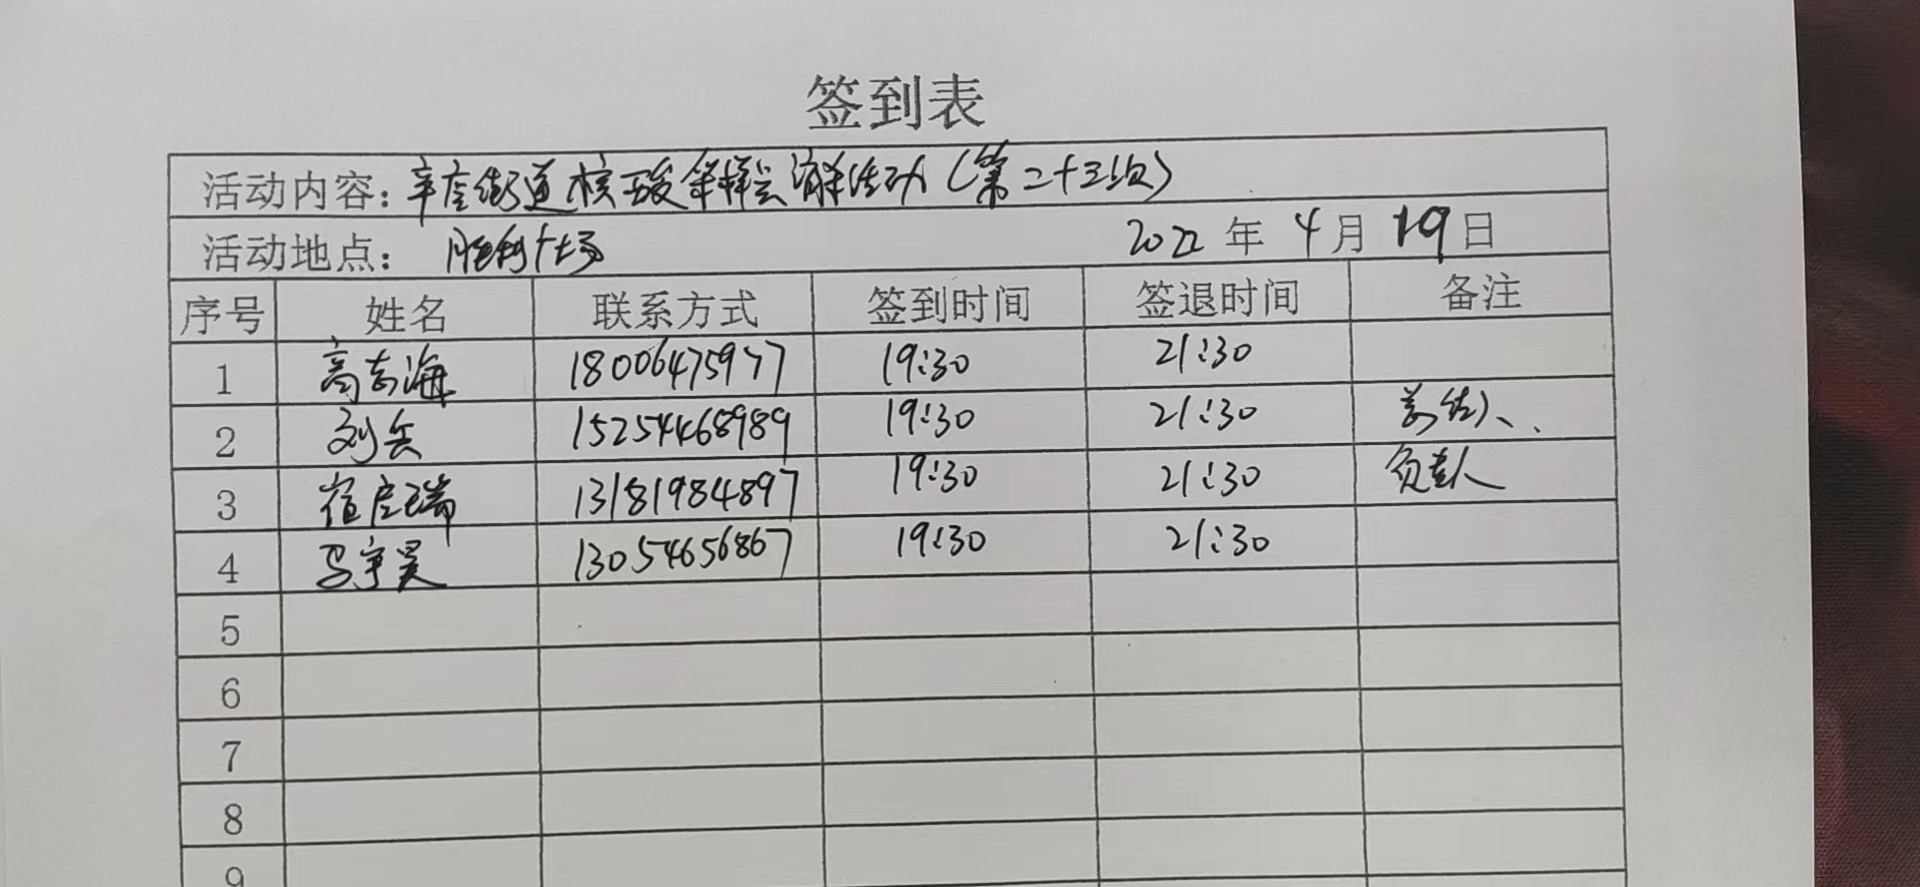 签到表
活动内容：辛店街道核酸采样点消杀活动（第二十三次）
活动地点： 胜利广场 2022年4月19日
序号 姓名 联系方式 签到时间 签退时间 备注
1 高志海 18006475977 19:30 21:30
2 刘兵 15254468989 19:30 21:30
3 13181984897 19:30 21:30 负责人
4 马宇昊 13054656867 19:30 21:30
5
6
7
8
9